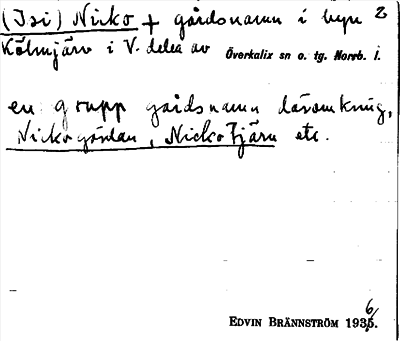 (Isi) Nicko + gårdsnamn i byn 2
Kölmjärv i V. delen av Överkalix sn o. tg. Norrb. l.
en grupp gårdsnamn däromkring,
Nickogårdan, Nickotjärn etc.
EDVIN BRÄNNSTRÖM 1936.